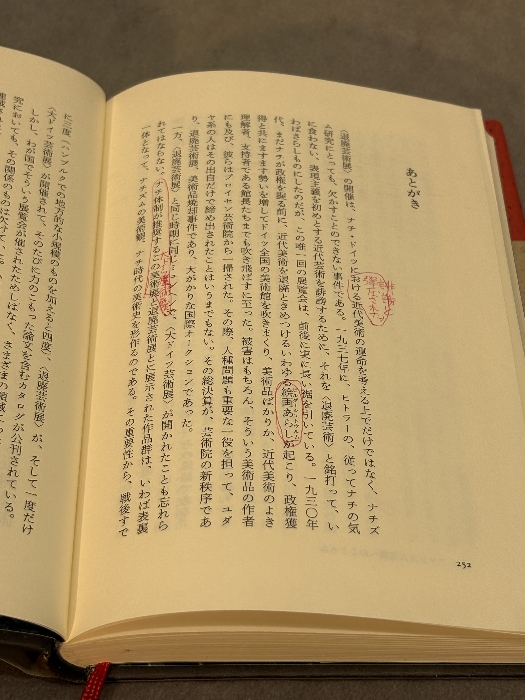 あとがき
〈退廃芸術展〉の開催は、ナチ・ドイツにおける近代美術の運命を考える上でだけではなく、ナチズ
ム研究にとっても、欠かすことのできない事件である。一九三七年に、ヒトラーの、従ってナチの気
に食わない、表現主義を初めとする近代芸術を誹謗するために、それを〈退廃芸術〉と銘打って、い
わばさらしものにしたのだが、この唯一回の展覧会は、前後に実に長い裾を引いている。一九三〇年
代、まだナチが政権を握る前に、近代美術を退廃ときめつけるいわゆる絵画あらしが起こり、政権獲
得と共にますます勢いを増してドイツ全国の美術館を吹きまくり、美術品ばかりか、近代美術のよき
理解者、支持者である館長たちまでも吹き飛ばすに至った。被害はもちろん、そういう美術品の作者
にも及び、彼らはプロイセン芸術院から一掃された。その際、人種問題も重要な一役を担って、ユダ
ヤ系の人はその出自だけで締め出されたことはいうまでもない。その総決算が、芸術院の新秩序であ
り、退廃芸術展、美術品焼却事件であり、大がかりな国際オークションであった。
一方、〈退廃芸術展〉と同じ時期に同じミュンヘンで、〈大ドイツ芸術展〉が開かれたことも忘れら
れてはならない。ナチ体制が推奨するこの美術展と退廃芸術展とに展示された作品群は、いわば表裏
一体となって、ナチズムの美術観、ナチ時代の美術史を形作るのである。その重要性から、戦後すで
252
に三度（ハンブルクでの地方的な小規模のものを加えると四度）、〈退廃芸術展〉が、そして一度だけ
〈大ドイツ芸術展〉が開催されて、そのたびに力のこもった論文を含むカタログが公刊されている。
しかし、わが国でそういう展覧会が催されたためしはなく、さまざまの領域
究においても、その関係のものは欠けて